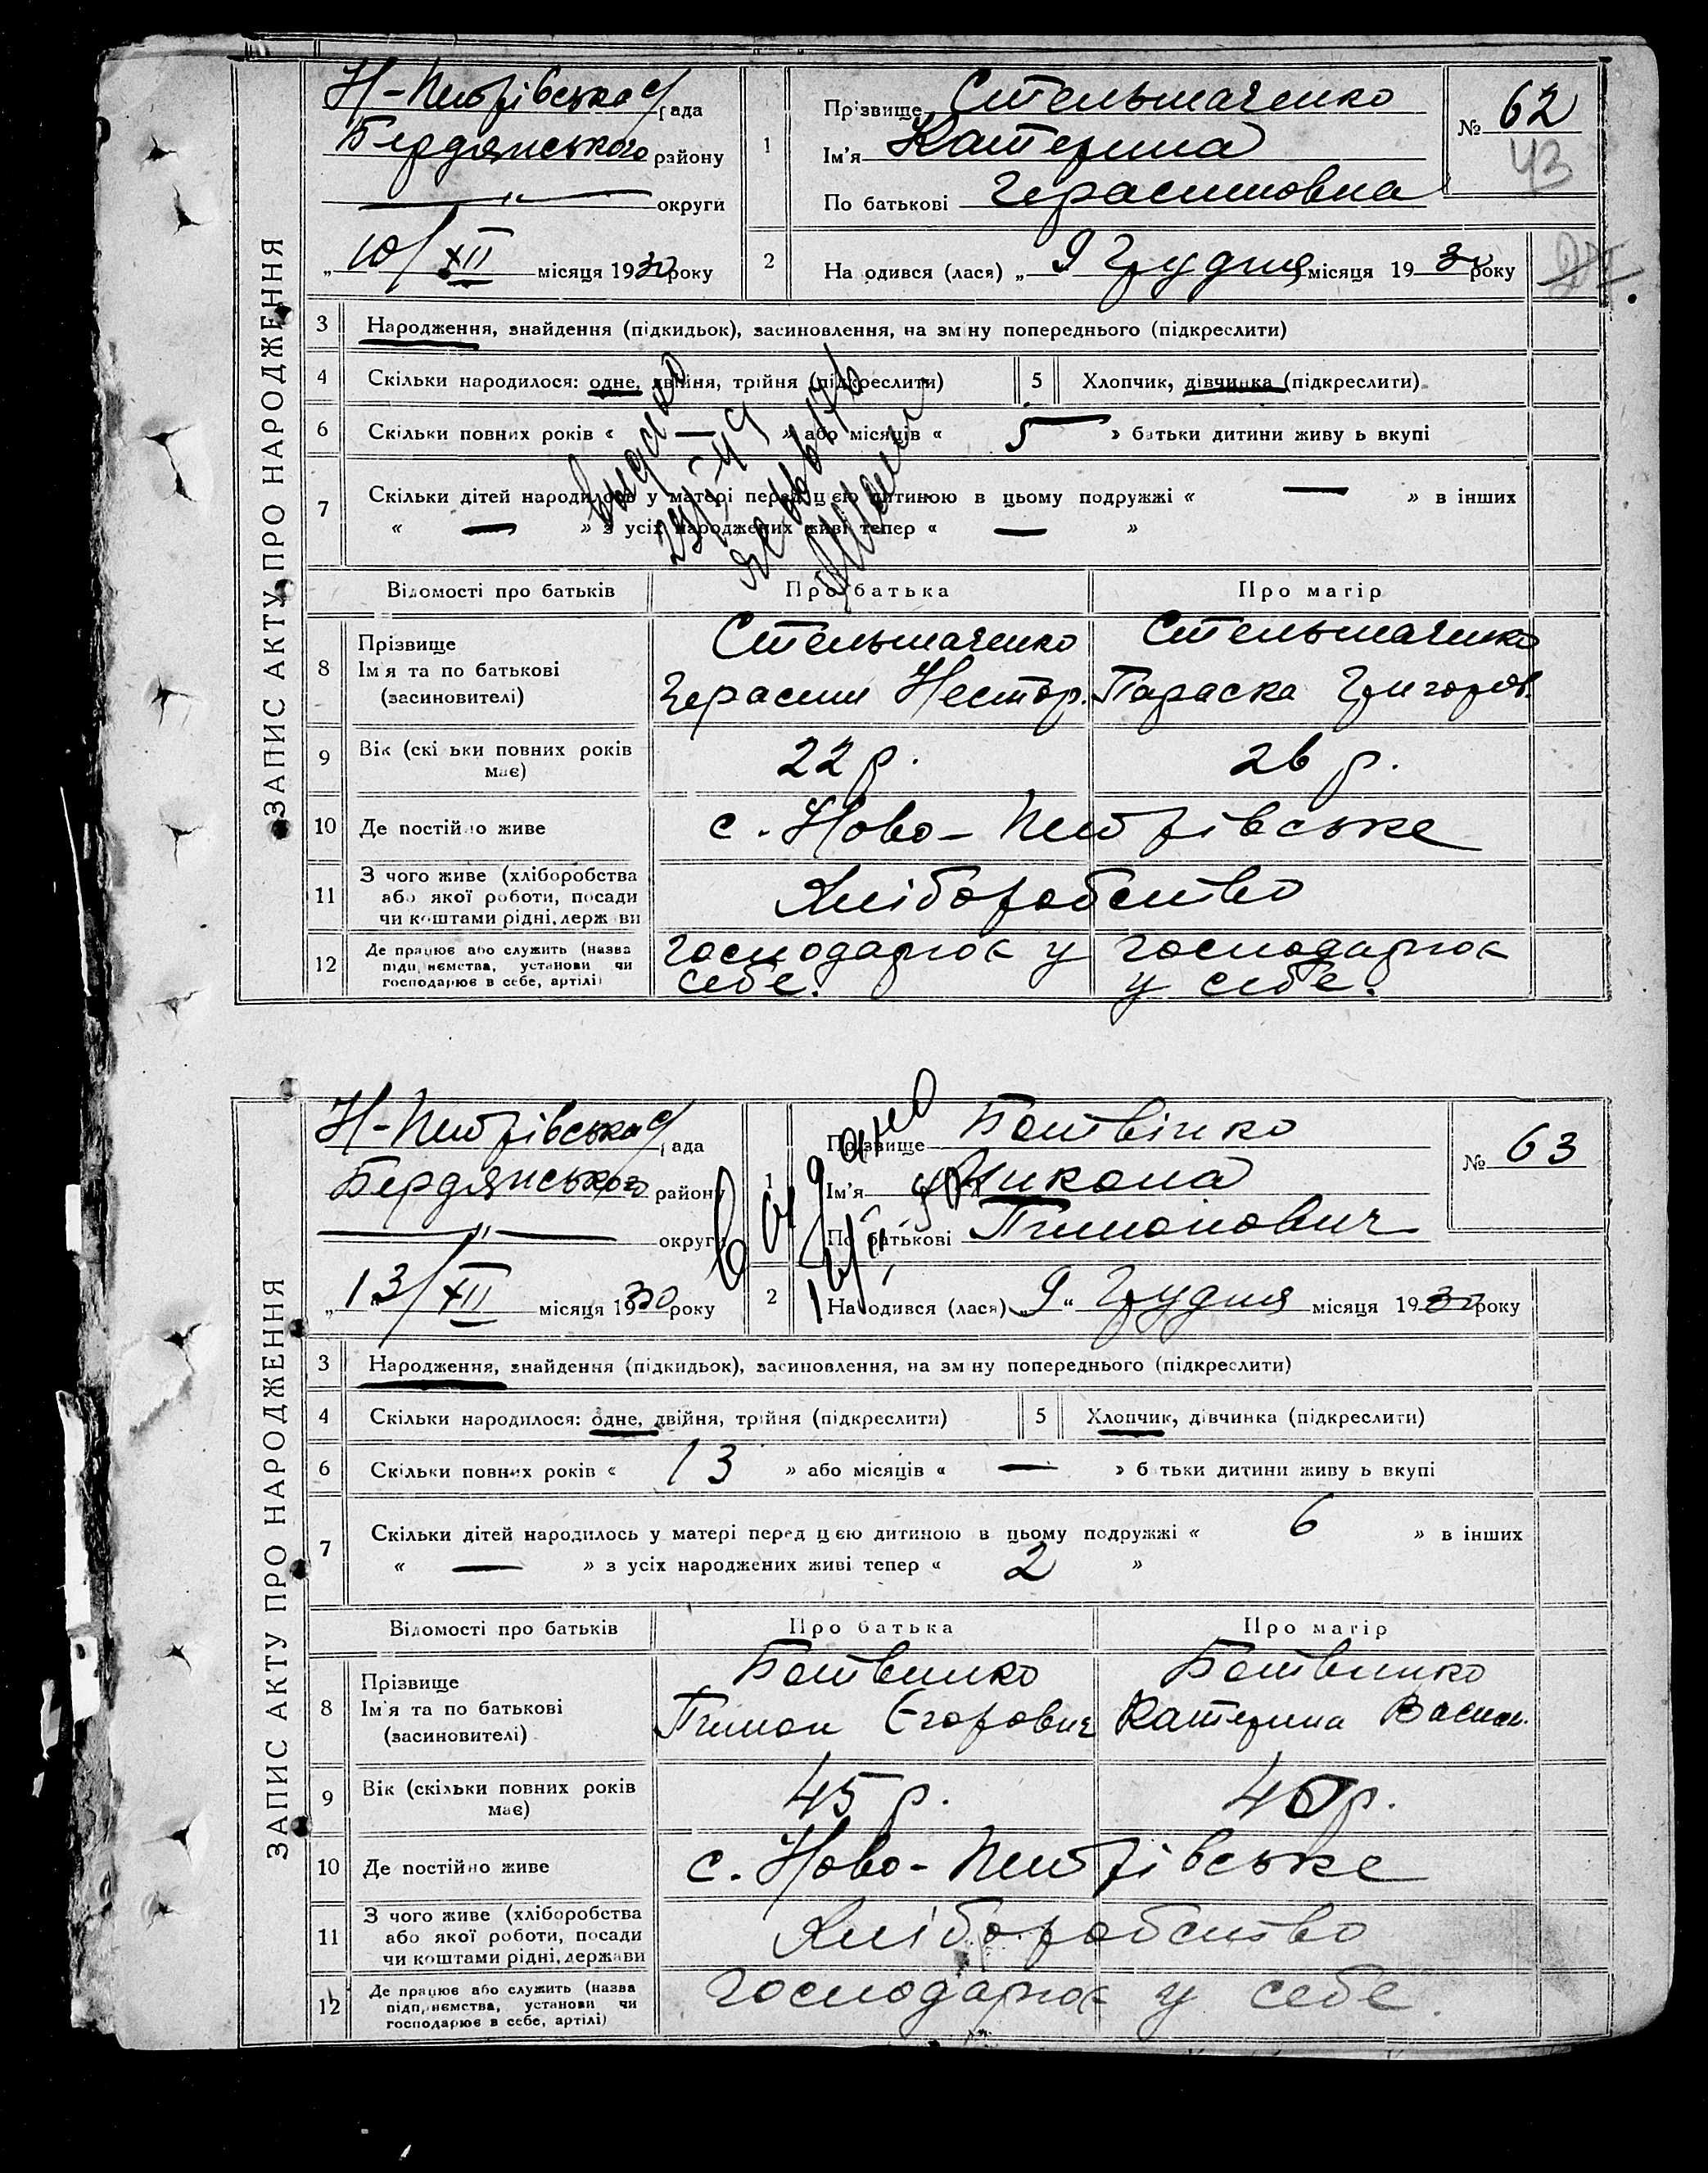 ЗАПИС АКТУ ПРО НАРОДЖЕННЯ
Н-Петрівська рада
Бердянського району
—„— округи
„10/XII місяця 1930 року
1 Прізвище Стельмаченко
Ім'я Катерина
По батькові Герасимовна
№ 62
43
2 На одився (лася) „9 Грудня місяця 1930 року
3 Народження, знайдення (підкидьок), засиновлення, на зміну попереднього (підкреслити)
4 Скільки народилося: одне, двійня, трійня (підкреслити) 5 Хлопчик, дівчинка (підкреслити)
6 Скільки повних років « — » або місяців « 5 » батьки дитини живу ь вкупі
7 Скільки дітей народилось у матері перед цією дитиною в цьому подружжі « — » в інших
« — » з усіх народжених живі тепер « — »
видано
Відомості про батьків Про батька Про матір
8 Прізвище Стельмаченко Стельмаченко
Ім'я та по батькові Герасим Нестор. Параска Григоров.
(засиновителі)
9 Вік (скі ьки повних років має) 22 р. 26 р.
10 Де постійно живе с. Ново-Петрівське
11 З чого живе (хліборобства
або якої роботи, посади Хліборобство
чи коштами рідні, держ ви
12 Де працює або служить (назва господарює у господарює
підприємства, установи чи себе. у себе.
господарює в себе, артілі)
ЗАПИС АКТУ ПРО НАРОДЖЕННЯ
Н-Петрівська рада
Бердянського району
—„— округи
„13/XII місяця 1930 року
видано
1 Прізвище Ботвінко
Ім'я Микола
По батькові Тимонович
№ 63
2 На одився (лася) „9“ Грудня місяця 1930 року
3 Народження, знайдення (підкидьок), засиновлення, на зм ну попереднього (підкреслити)
4 Скільки народилося: одне, двійня, трійня (підкреслити) 5 Хлопчик, дівчинка (підкреслити)
6 Скільки повних років « 13 » або місяців « — » б тьки дитини живу ь вкупі
7 Скільки дітей народилось у матері перед цією дитиною в цьому подружжі « 6 » в інших
« — » з усіх народжених живі тепер « 2 »
Відомості про батьків Про батька Про матір
8 Прізвище Ботвинко Ботвинко
Ім'я та по батькові Тимон Єгорович Катерина Васил.
(засиновителі)
9 Вік (скільки повних років має) 45 р. 40 р.
10 Де постійно живе с. Ново-Петрівське
11 З чого живе (хліборобства
або якої роботи, посади Хліборобство
чи коштами рідні, держави
12 Де працює або служить (назва господарює у себе.
підприємства, установи чи
господарює в себе, артілі)